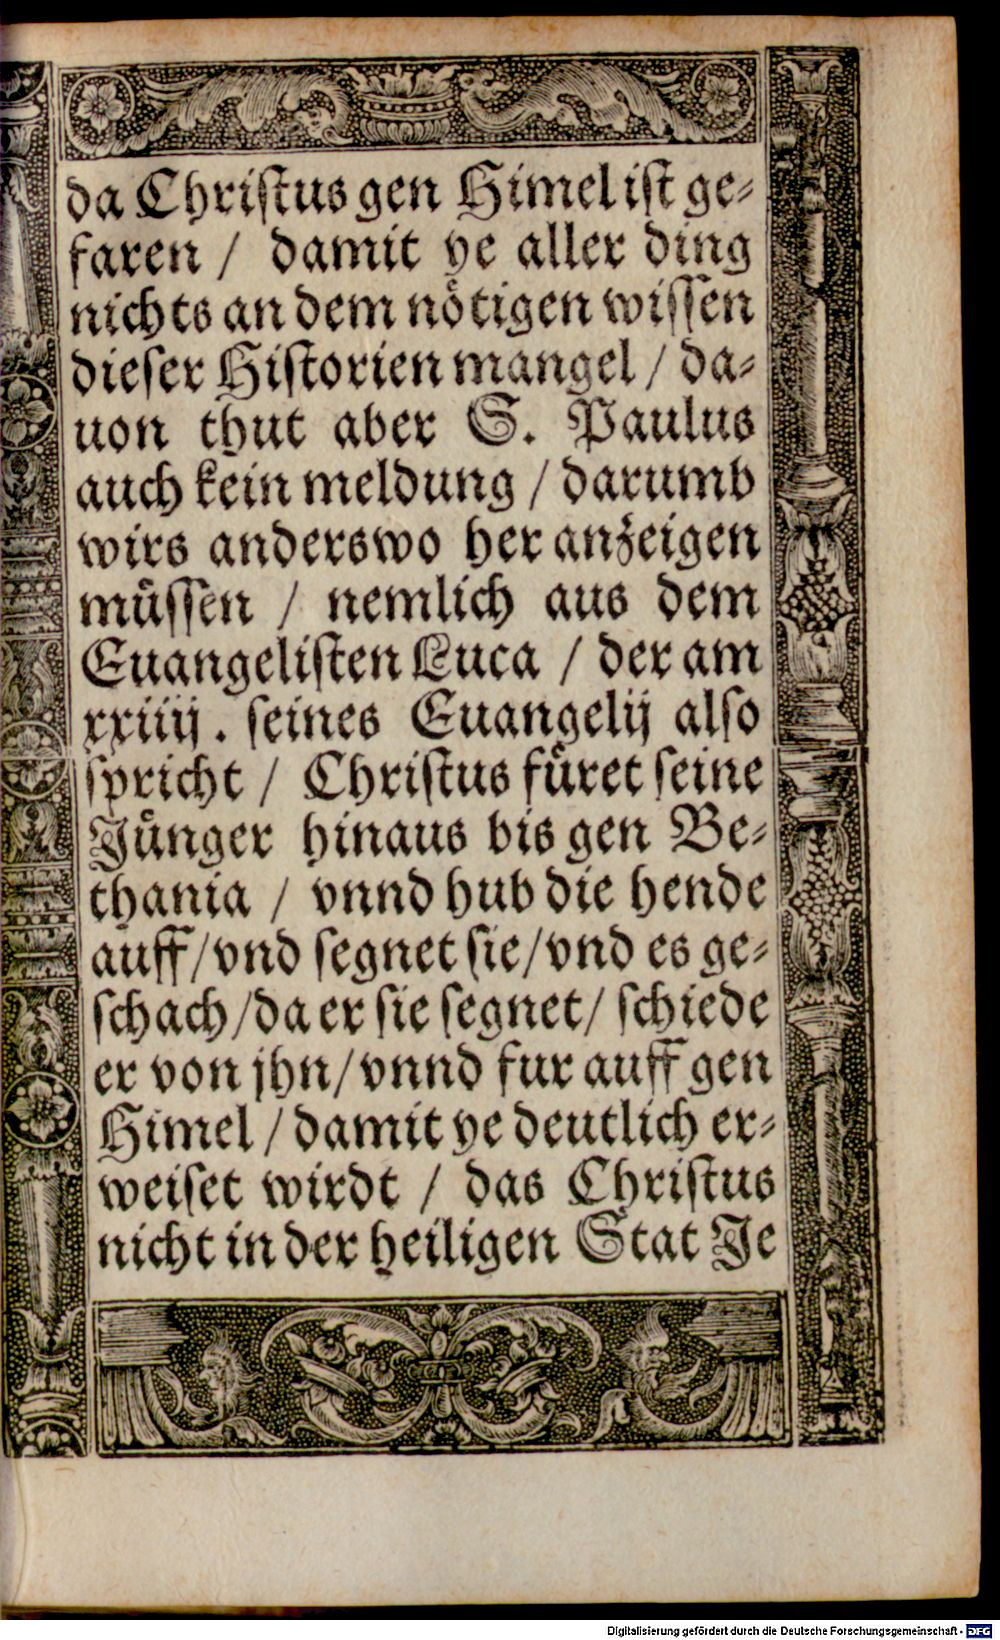 da Christus gen Himel ist ge-
faren / damit ye aller ding
nichts an dem nötigen wissen
dieser Historien mangel / da-
uon thut aber S. Paulus
auch kein meldung / darumb
wirs anderswo her anzeigen
müssen / nemlich aus dem
Euangelisten Luca / der am
xxiiij. seines Euangelij also
spricht / Christus füret seine
Jünger hinaus bis gen Be-
thania / vnnd hub die hende
auff / vnd segnet sie / vnd es ge-
schach / da er sie segnet / schiede
er von jhn / vnnd fur auff gen
Himel / damit ye deutlich er-
weiset wirdt / das Christus
nicht in der heiligen Stat Je
Digitalisierung gefördert durch die Deutsche Forschungsgemeinschaft - DFG